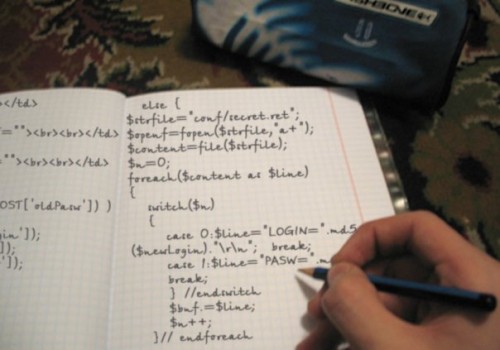 ></td>
="">  </td>
="">  </td>
OST['oldPasw']) )
gin']);
]);
']);
else {
$strfile="conf/secret.ret";
$openf=fopen($strfile,"a+");
$content=file($strfile);
$n=0;
foreach($content as $line)
{
switch($n)
{
case 0:$line="LOGIN=".md5
($newLogin)."\r\n"; break;
case 1:$line="PASW=".m
break;
} //endswitch
$buf.=$line;
$n++;
}// endforeach